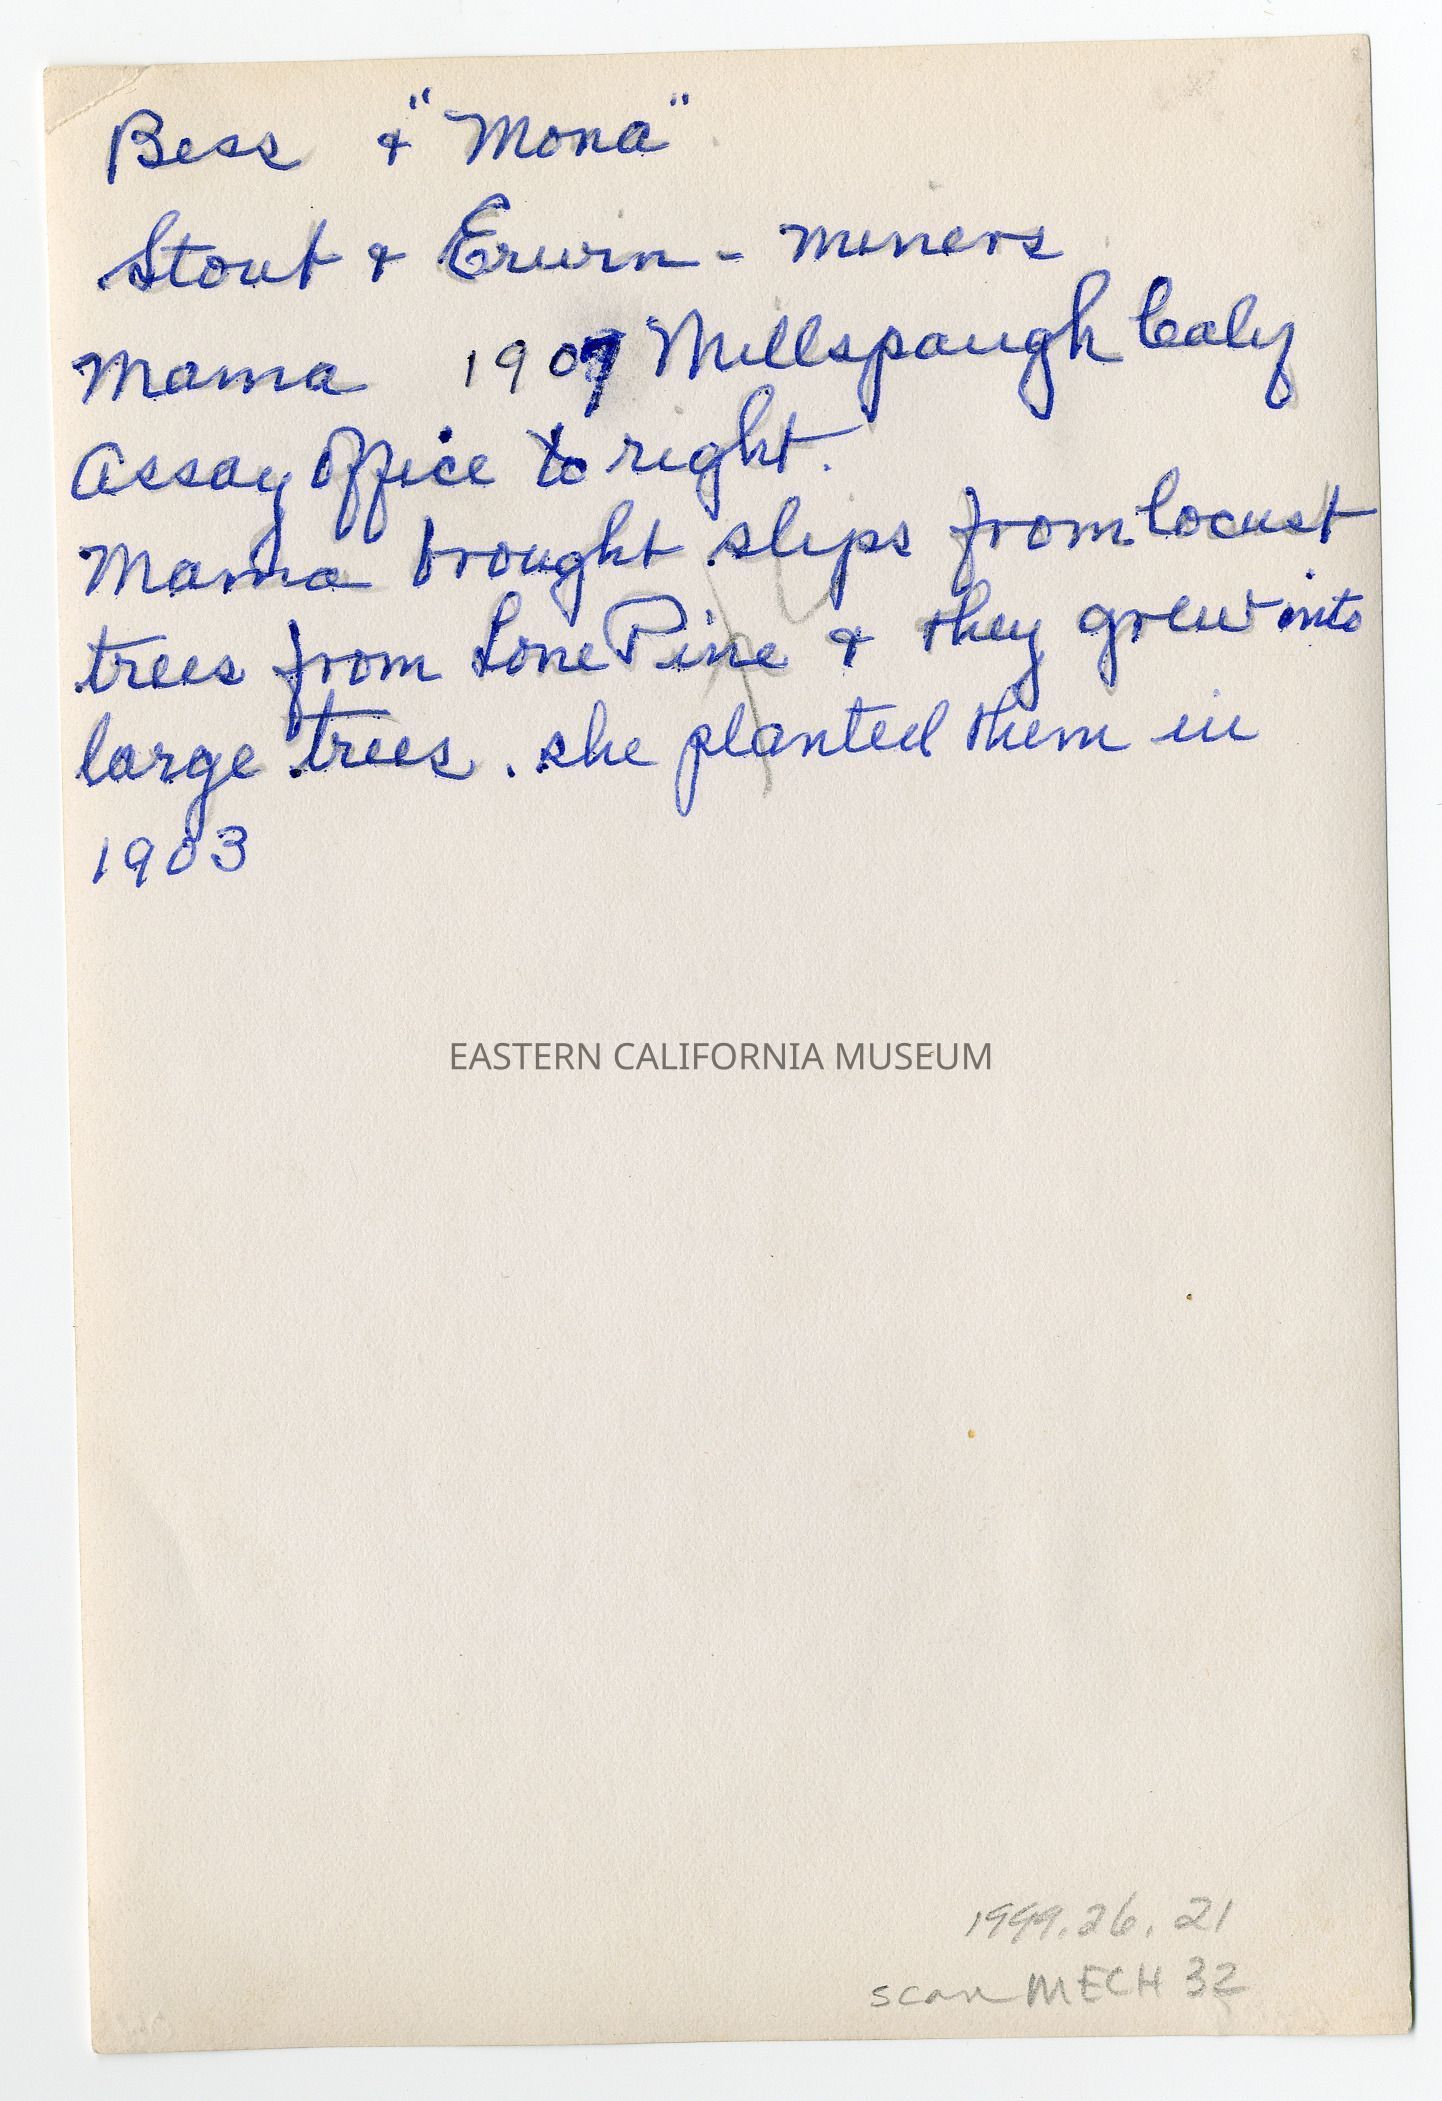 Bess & "Mona"
Stout & Erwin - miners
Mama 1907 Millspaugh Calif
Assay Office to right.
Mama brought slips from locust
trees from Lone Pine & they grew into
large trees. she planted them in
1903
EASTERN CALIFORNIA MUSEUM
1999.26.21
scan MECH 32